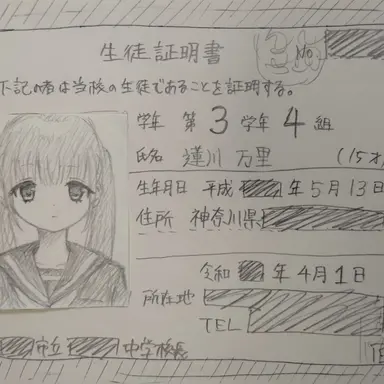 生徒証明書
No.
下記の者は当校の生徒であることを証明する。
学年 第3学年4組
氏名 蓮川 万里 (15才
生年月日 平成 年5月13日
住所 神奈川県
令和 年4月1日
所在地
TEL
市立 中学校長